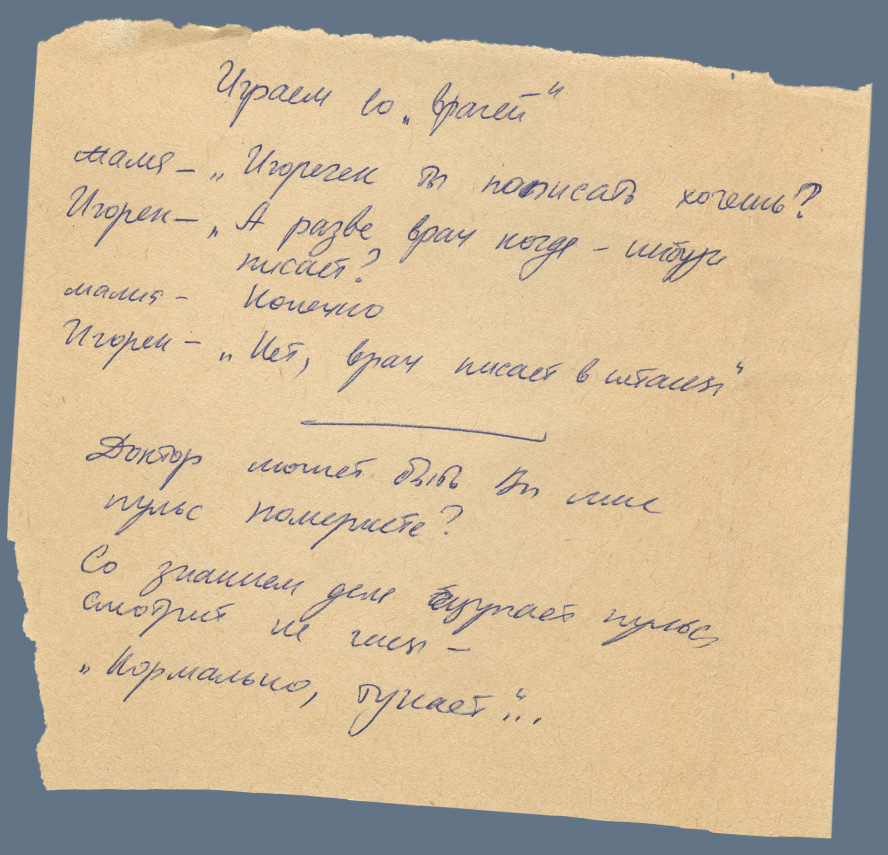 Играем во „врачей"
мама – „Игоречек ты пописать хочешь?
Игорек – „А разве врач когда – нибудь
писает?
мама – Конечно
Игорек – „Нет, врач писает в штаны"
Доктор может быть Вы мне
пульс померяете?
Со знанием дела щупает пульс,
смотрит на часы –
„Нормально, тукает"...